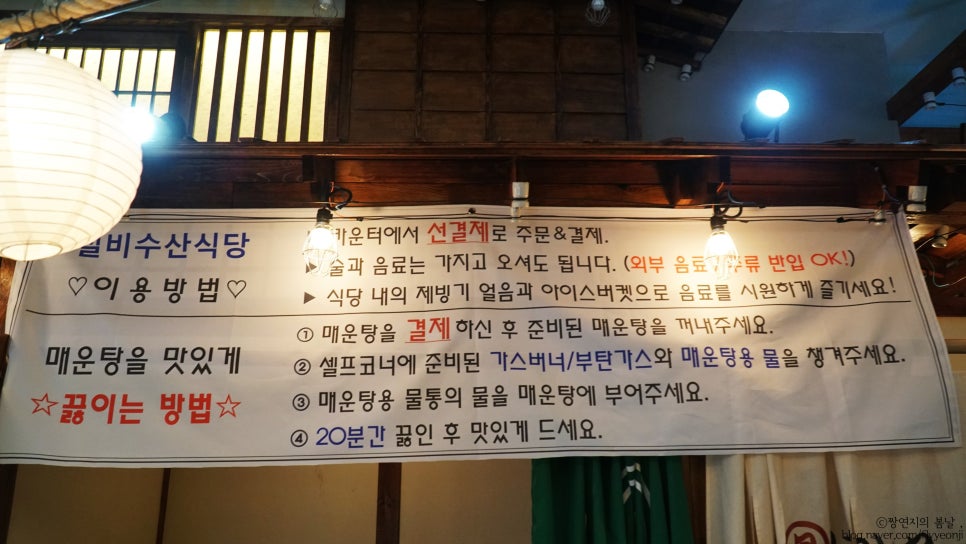 비수산식당
♡이용방법♡
카운터에서 선결제로 주문&결제.
▶ 술과 음료는 가지고 오셔도 됩니다. (외부 음료, 주류 반입 OK!)
▶ 식당 내의 제빙기 얼음과 아이스버켓으로 음료를 시원하게 즐기세요!
매운탕을 맛있게
☆끓이는 방법☆
① 매운탕을 결제 하신 후 준비된 매운탕을 꺼내주세요.
② 셀프코너에 준비된 가스버너/부탄가스와 매운탕용 물을 챙겨주세요.
③ 매운탕용 물통의 물을 매운탕에 부어주세요.
④ 20분간 끓인 후 맛있게 드세요.
©짱연지의 봄날.